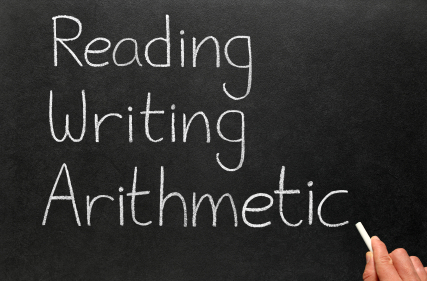 Reading
Writing
Arithmetic